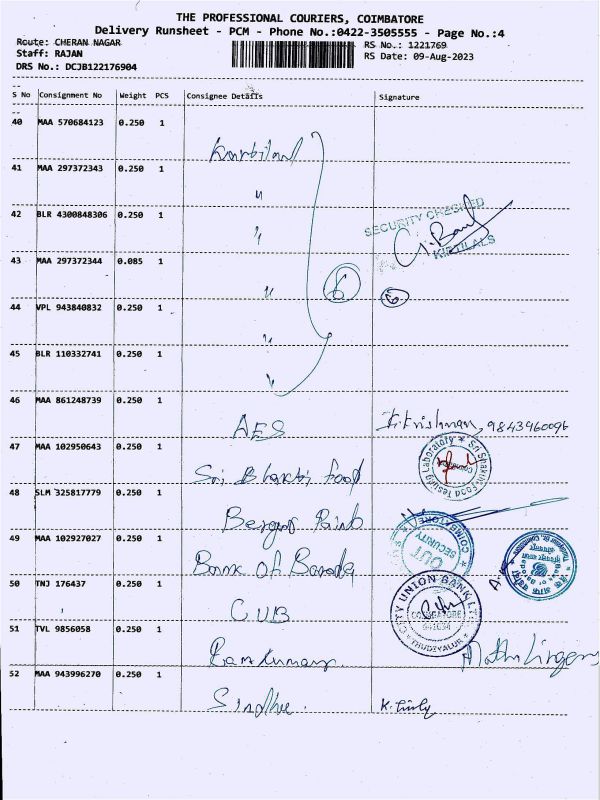 THE PROFESSIONAL COURIERS, COIMBATORE
Delivery Runsheet - PCM - Phone No.:0422-3505555 - Page No.:4
Route: CHERAN NAGAR RS No.: 1221769
Staff: RAJAN RS Date: 09-Aug-2023
DRS No.: DCJB122176904
S No Consignment No Weight PCS Consignee Details Signature
40 MAA 570684123 0.250 1
41 MAA 297372343 0.250 1 "
42 BLR 4300848306 0.250 1 " SECURITY CHECKED KIRTILALS
43 MAA 297372344 0.085 1 " 6 6
44 VPL 943840832 0.250 1 "
45 BLR 110332741 0.250 1 "
46 MAA 861248739 0.250 1 AES 9843960096
47 MAA 102950643 0.250 1 Sri Bhakti Food Sri Shakthi Food Testing Laboratory
48 SLM 325817779 0.250 1 Berger Paints
49 MAA 102927027 0.250 1 Bank of Baroda COIMBATORE SECURITY OUT
50 TNJ 176437 0.250 1 CUB CITY UNION BANK LTD COIMBATORE 641034 THUDIYALUR
51 TVL 9856058 0.250 1 Ramkumar
52 MAA 943996270 0.250 1 Sindhu